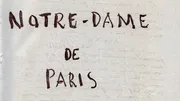 NOTRE-DAME
DE
PARIS